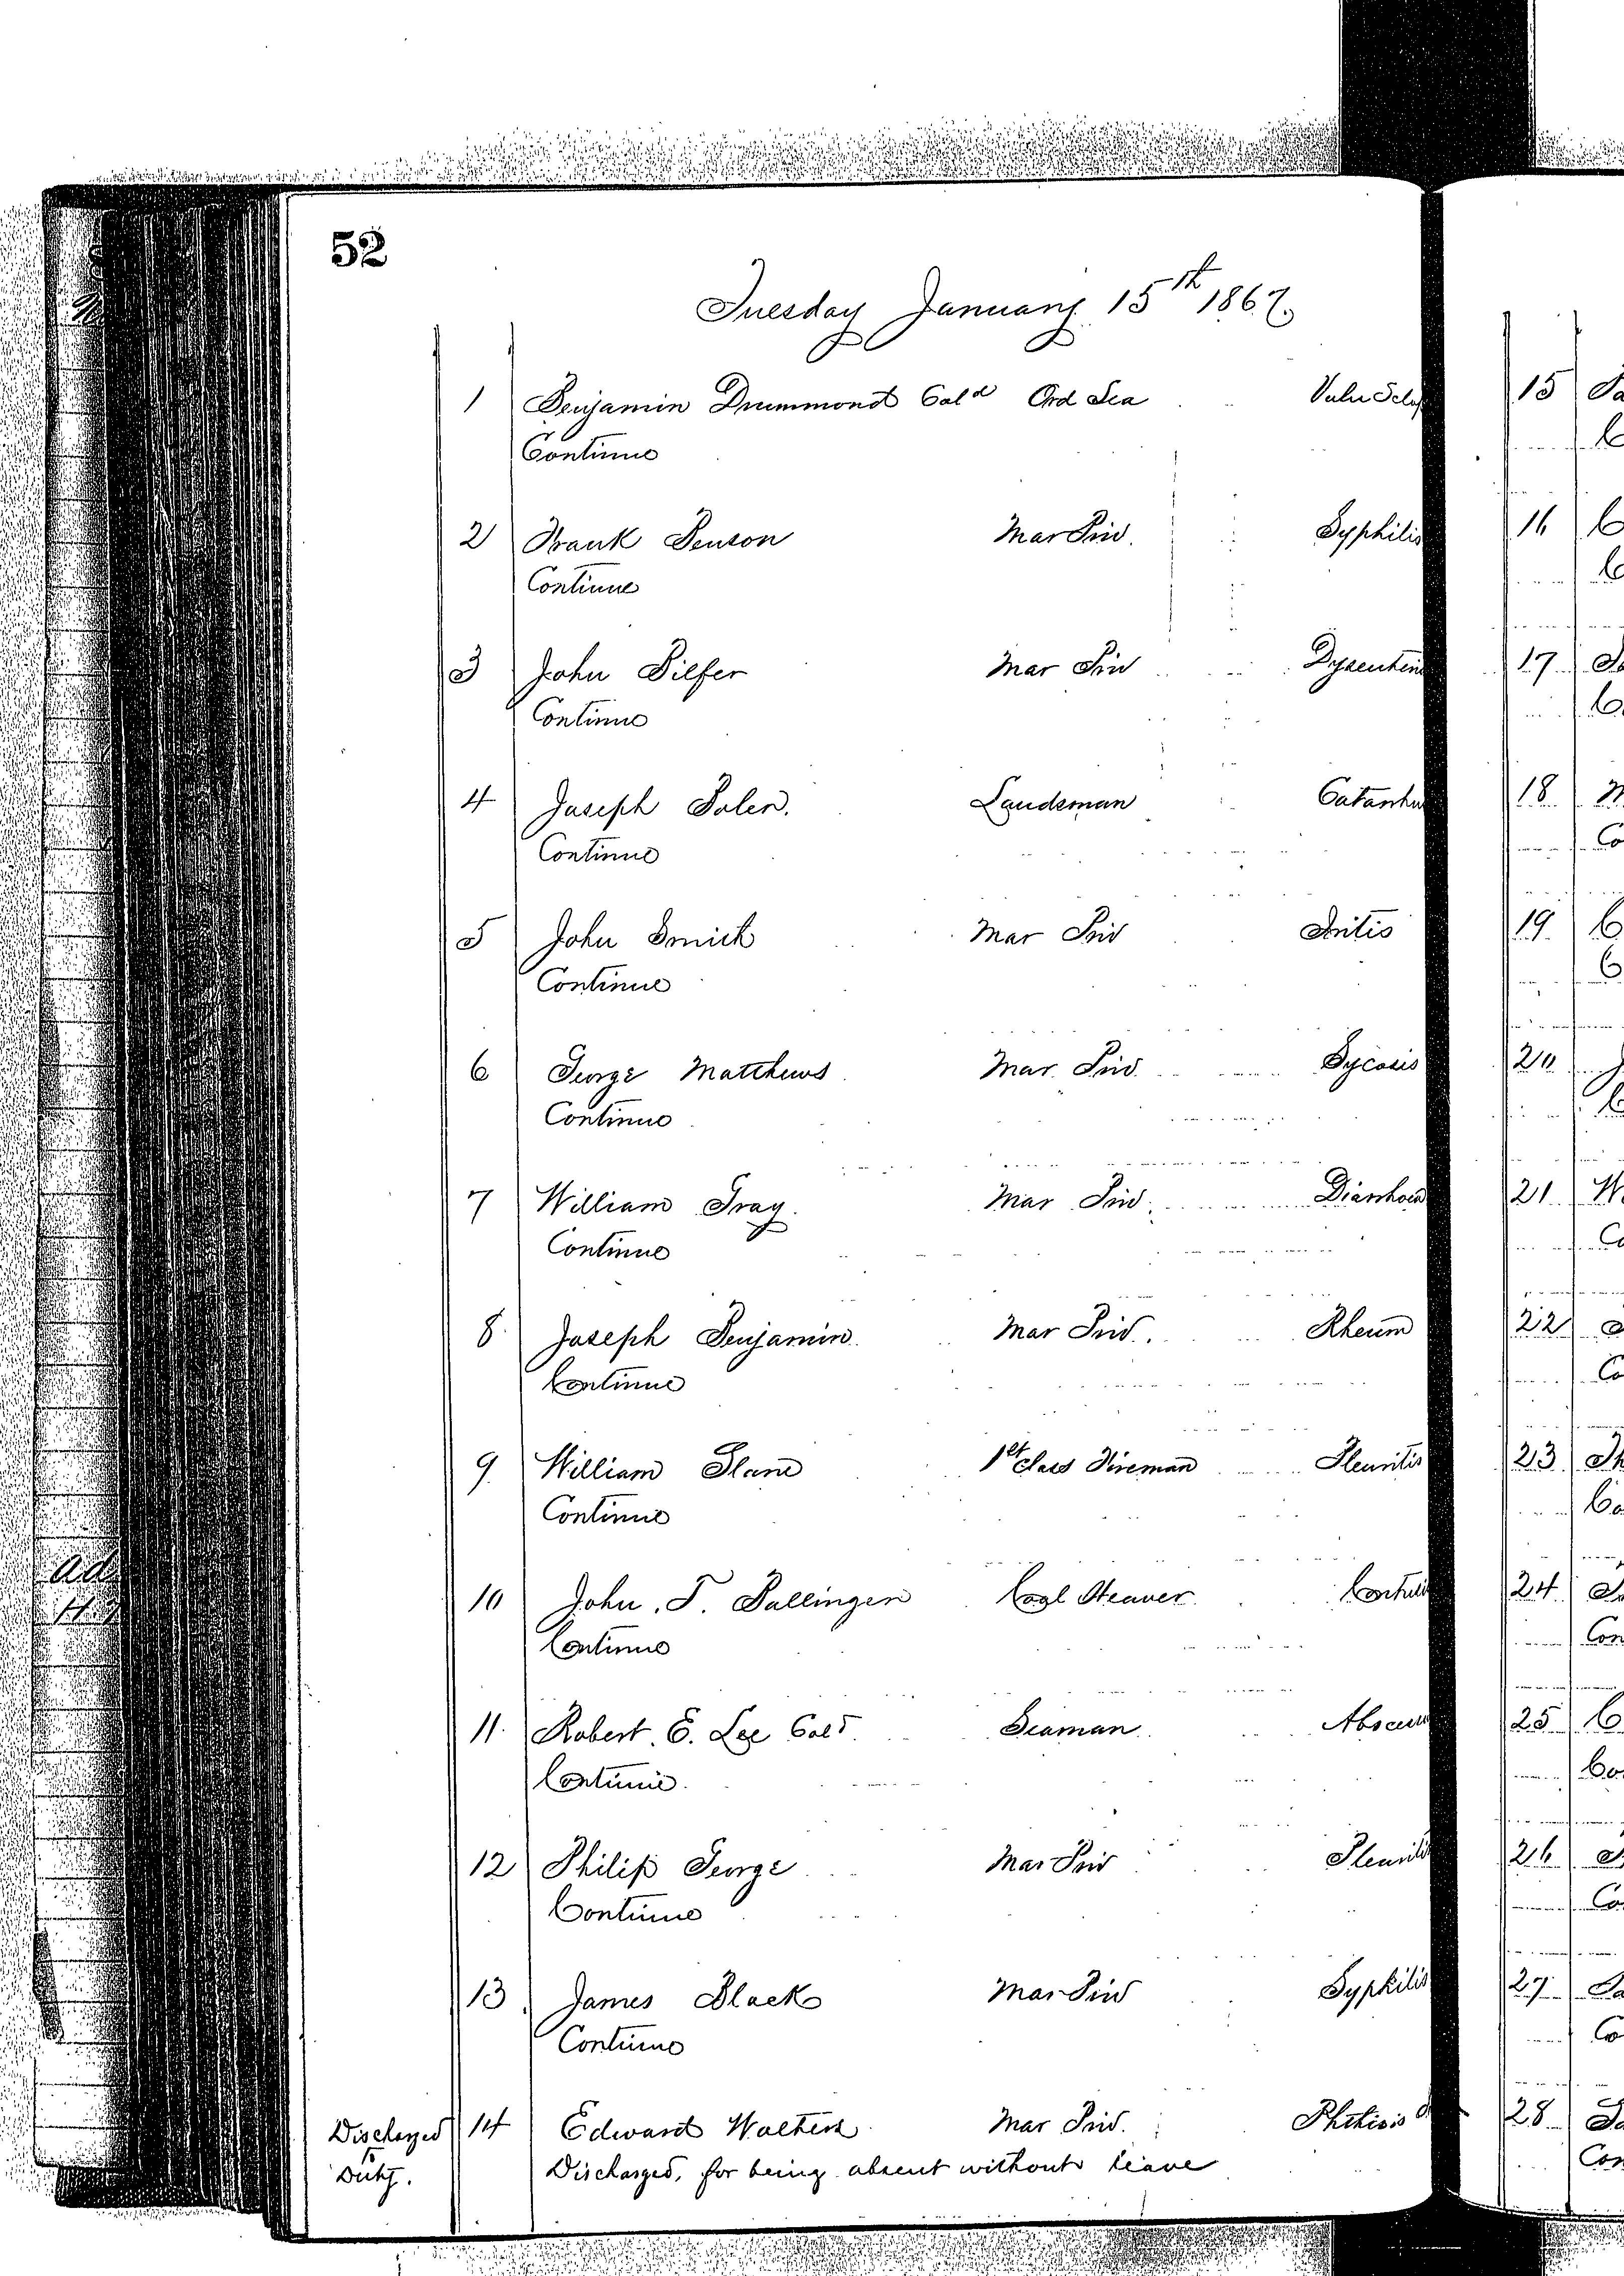 52
Tuesday January 15th 1867.
1 Benjamin Drummond Cold Ord Sea
Continue
2 Frank Benson Mar Priv. Syphilis
Continue
3 John Pilfer Mar Priv
Continue
4 Joseph Landsman
Continue
5 John Smick Mar Priv Iritis
Continue
6 George Matthews Mar Priv Sycosis
Continue
7 William Gray. Mar Priv.
Continue
8 Joseph Benjamin Mar Priv. Rheum
Continue
9 William 1st Class Fireman Pleuritis
Continue
10 John. T. Ballinger Coal Heaver
Continue
11 Robert. E. Lee Cold Seaman
Continue
12 Philip George Mar Priv
Continue
13 James Black Mar Priv Syphilis
Continue
Discharged to Duty. 14 Edward Walters Mar Priv. Phthisis
Discharged, for being absent without leave
15
16
17
18
19
20
21
22
23
24
25
26
27
28